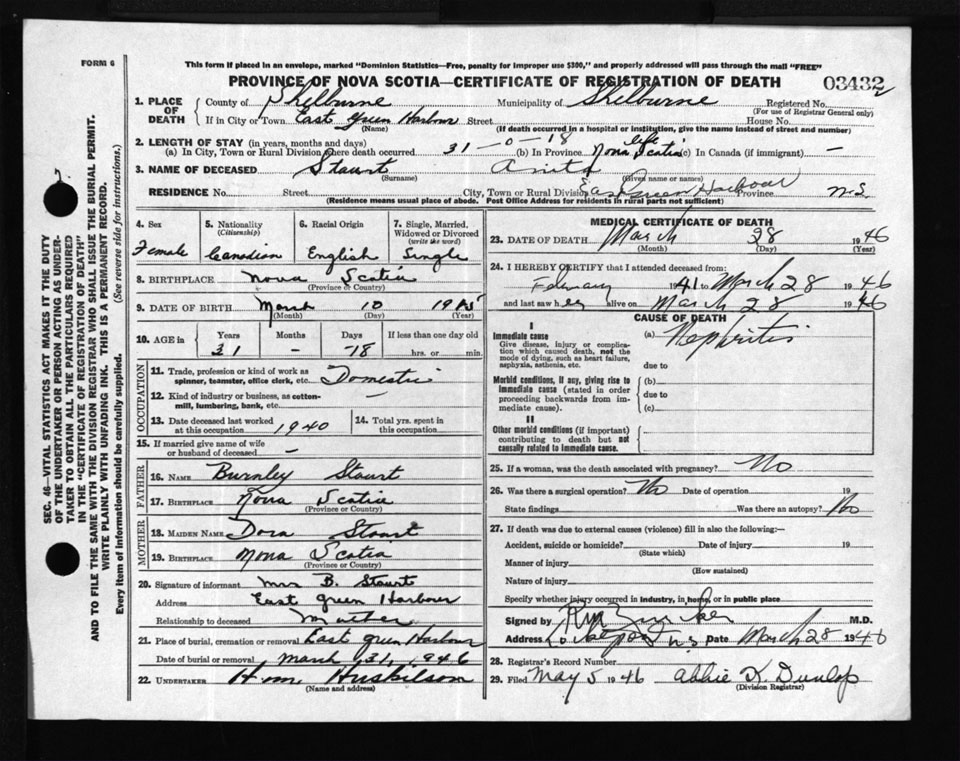 FORM 6
This form if placed in an envelope, marked "Dominion Statistics—Free, penalty for improper use $300," and properly addressed will pass through the mail "FREE"
PROVINCE OF NOVA SCOTIA—CERTIFICATE OF REGISTRATION OF DEATH
03432
1. PLACE OF DEATH
County of Shelburne Municipality of Shelburne Registered No.
(For use of Registrar General only)
If in City or Town East Green Harbour Street House No.
(Name) (If death occurred in a hospital or institution, give the name instead of street and number)
2. LENGTH OF STAY (in years, months and days)
(a) In City, Town or Rural Division where death occurred 31-0-18 (b) In Province life Nova Scotia (c) In Canada (if immigrant) —
3. NAME OF DECEASED Staurt Anita
(Surname) (Given name or names)
RESIDENCE No. Street City, Town or Rural Division East Green Harbour Province N.S.
(Residence means usual place of abode. Post Office Address for residents in rural parts not sufficient)
4. Sex
Female
5. Nationality
(Citizenship)
Canadian
6. Racial Origin
English
7. Single, Married, Widowed or Divorced
(write the word)
Single
8. BIRTHPLACE Nova Scotia
(Province or Country)
9. DATE OF BIRTH March 10 1915
(Month) (Day) (Year)
10. AGE in
Years Months Days If less than one day old
31 — 18 hrs. or min.
OCCUPATION
11. Trade, profession or kind of work as spinner, teamster, office clerk, etc. Domestic
12. Kind of industry or business, as cotton-mill, lumbering, bank, etc. —
13. Date deceased last worked at this occupation 1940
14. Total yrs. spent in this occupation
15. If married give name of wife or husband of deceased —
FATHER
16. NAME Burnley Staurt
17. BIRTHPLACE Nova Scotia
(Province or Country)
MOTHER
18. MAIDEN NAME Dora Staurt
19. BIRTHPLACE Nova Scotia
(Province or Country)
20. Signature of informant Mrs B. Staurt
Address East Green Harbour
Relationship to deceased Mother
21. Place of burial, cremation or removal East Green Harbour
Date of burial or removal March 31, 1946
22. UNDERTAKER H.M. Huskilson
(Name and address)
MEDICAL CERTIFICATE OF DEATH
23. DATE OF DEATH March 28 1946
(Month) (Day) (Year)
24. I HEREBY CERTIFY that I attended deceased from:
February 1941 to March 28 1946
and last saw her alive on March 28 1946
CAUSE OF DEATH
I
Immediate cause
Give disease, injury or complication which caused death, not the mode of dying, such as heart failure, asphyxia, asthenia, etc.
(a) Nephritis
due to
Morbid conditions, if any, giving rise to immediate cause (stated in order proceeding backwards from immediate cause).
(b)
due to
(c)
II
Other morbid conditions (if important) contributing to death but not causally related to immediate cause.
25. If a woman, was the death associated with pregnancy? No
26. Was there a surgical operation? No Date of operation 19
State findings Was there an autopsy? No
27. If death was due to external causes (violence) fill in also the following:—
Accident, suicide or homicide? Date of injury 19
(State which)
Manner of injury
(How sustained)
Nature of injury
Specify whether injury occurred in industry, in home, or in public place
Signed by M.D.
Address Lockeport N.S. Date March 28 1946
28. Registrar's Record Number
29. Filed May 5 1946 Abbie K. Dunlop
(Division Registrar)
SEC. 46—VITAL STATISTICS ACT MAKES IT THE DUTY OF THE UNDERTAKER OR PERSON ACTING AS UNDERTAKER TO OBTAIN ALL THE PARTICULARS REQUIRED IN THE "CERTIFICATE OF REGISTRATION OF DEATH" AND TO FILE THE SAME WITH THE DIVISION REGISTRAR WHO SHALL ISSUE THE BURIAL PERMIT.
WRITE PLAINLY WITH UNFADING INK. THIS IS A PERMANENT RECORD.
Every item of information should be carefully supplied. (See reverse side for instructions.)